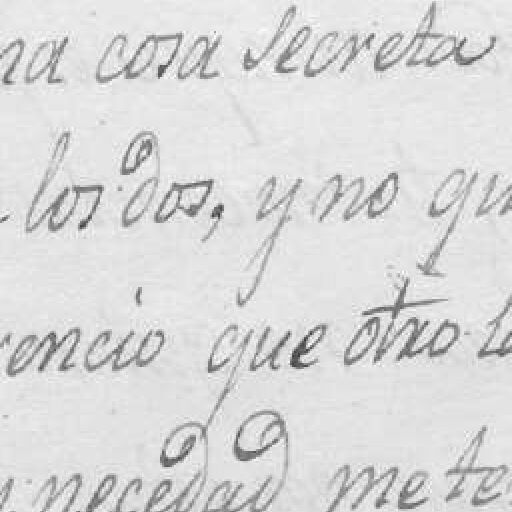 na cosa Secreta
los dos, y no qu
rencio que otro la
necedad mete